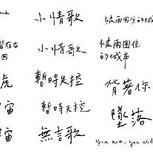 小情歌
被雨困住的城
小情歌
被雨困住
的城市
虎
暫時失控
背著你
宙
暫時失控
墜落
宙
無言歌
You are, you will